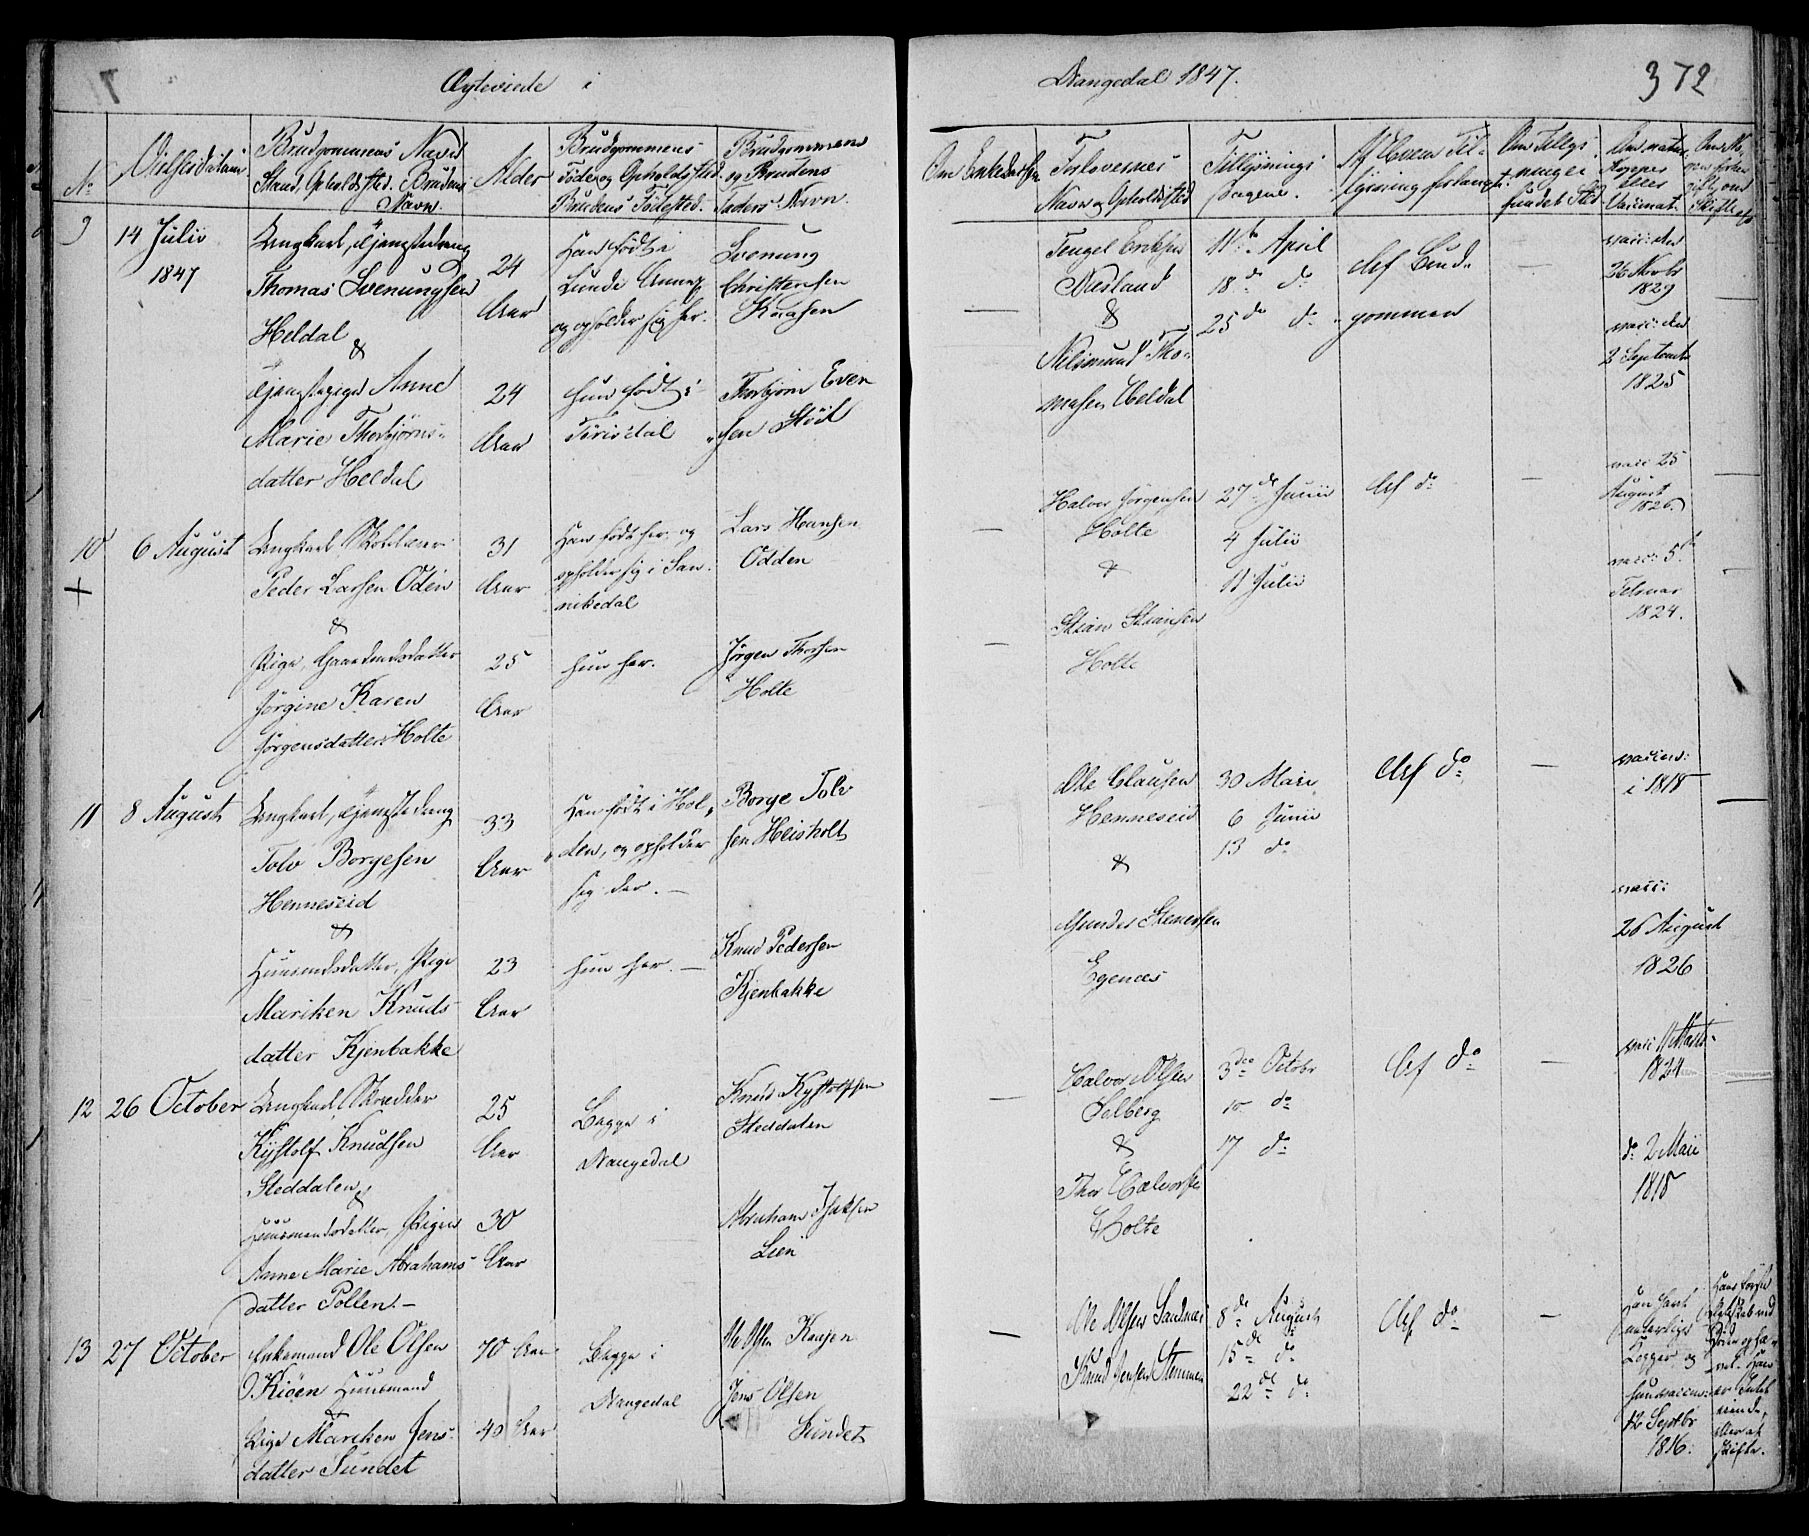 Ægteviede i Drangedal 1847.
372
No
Vielsesdatum
Brudgommens Navn
Stand, Opholdssted. Brudens
Navn.
Alder
Brudgommens
Føde og Opholdssted.
Brudens Fødested.
Brudgommens
og Brudens
Faders Navn.
Om Enke
Forlovernes
Navn og Opholdssted
Tillysnings
Dagene.
Af Hvem Til-
lysning forlangt.
Om Tillys
ninger
fundet Sted
Om natur.
Kopper
eller
Vaccinat.
9
14 Julii
1847
Ungkarl, Tjenestedreng
Thomas Svenungsen
Heldal
&
Tjenestepige Anne
Marie Thorbjørns-
datter Heldal
24
Aar
24
Aar
Han født i
Lunde Annex
og opholder sig her.
Hun født i
Tørisdal
Svenung
Christensen
Knasen
Thorbjørn Even
sen Stöil
—
Tengel Eriksen
&
Nilsmund Tho-
masen Heldal
11te April
18de do
25de do
Af Brud-
gommen
—
vacc: den
26 Novbr
1829
vacc: den
2 Septembr
1825
10
+
6 August
Ungkarl,
Peder Larsen Oden
&
Pige, Gaardmandsdatter
Jørgine Karen
Jørgensdatter Holte
31
Aar
25
Aar
Han født her, og
opholder sig i San-
nikedal
Hun her.
Lars Hansen
Odden
Jørgen Thorsen
Holte
—
—
Halvor Jørgensen
Holte
&
Stian Stiansen
Holte
27de Junii
4 Julii
11 Julii
Af do
—
vacc 25
August
1826.
vacc: 5te
Februar
1824.
11
8 August
Ungkarl, Tjenestedreng
Tolv Borgesen
Henneseid
&
Huusmandsdatter, Pige
Mariken Knuds-
datter Kjenbakke
33
Aar
23
Aar
Han født i Hol-
den, og opholder
sig der. —
Hun her. —
Borge Tolv
sen Heisholt
Knud Pedersen
Kjenbakke
Ole Clausen
Henneseid
&
Gunder Stenersen
Egenæs
30 Maii
6 Junii
13 do
Af do
—
vaccin:
i 1818
vacc:
26 August
1826
12
26 October
Ungkarl, Skrædder
Kystolf Knudsen
Steddalen
&
Huusmandsdatter, Pigen
Anne Marie Abrahams-
datter Pollen. —
25
Aar
30
Aar
Begge i
Drangedal
Knud Kystolfsen
Steddalen
Abraham Isaksen
Lien
—
Halvor Olsen
Solberg
&
Thor Halvorsen
Holte
3die Octobr
10 do
17 do
Af do
—
vacc 11 Marts
1824
do 2 Maii
1818
13
27 October
Enkemand Ole Olsen
Kiøen Huusmand
&
Pige Mariken Jens-
datter Sundet
70 Aar
40 Aar
Begge i
Drangedal
Ole Olsen
Jens Olsen
Sundet
—
Ole Olsen Sandnæs
Knud Jensen Stemmen
8de August
15de do
22de do
Af do
—
Han havt
naturlige
Kopper og
Hun vaccin:
12 Septbr
1816.